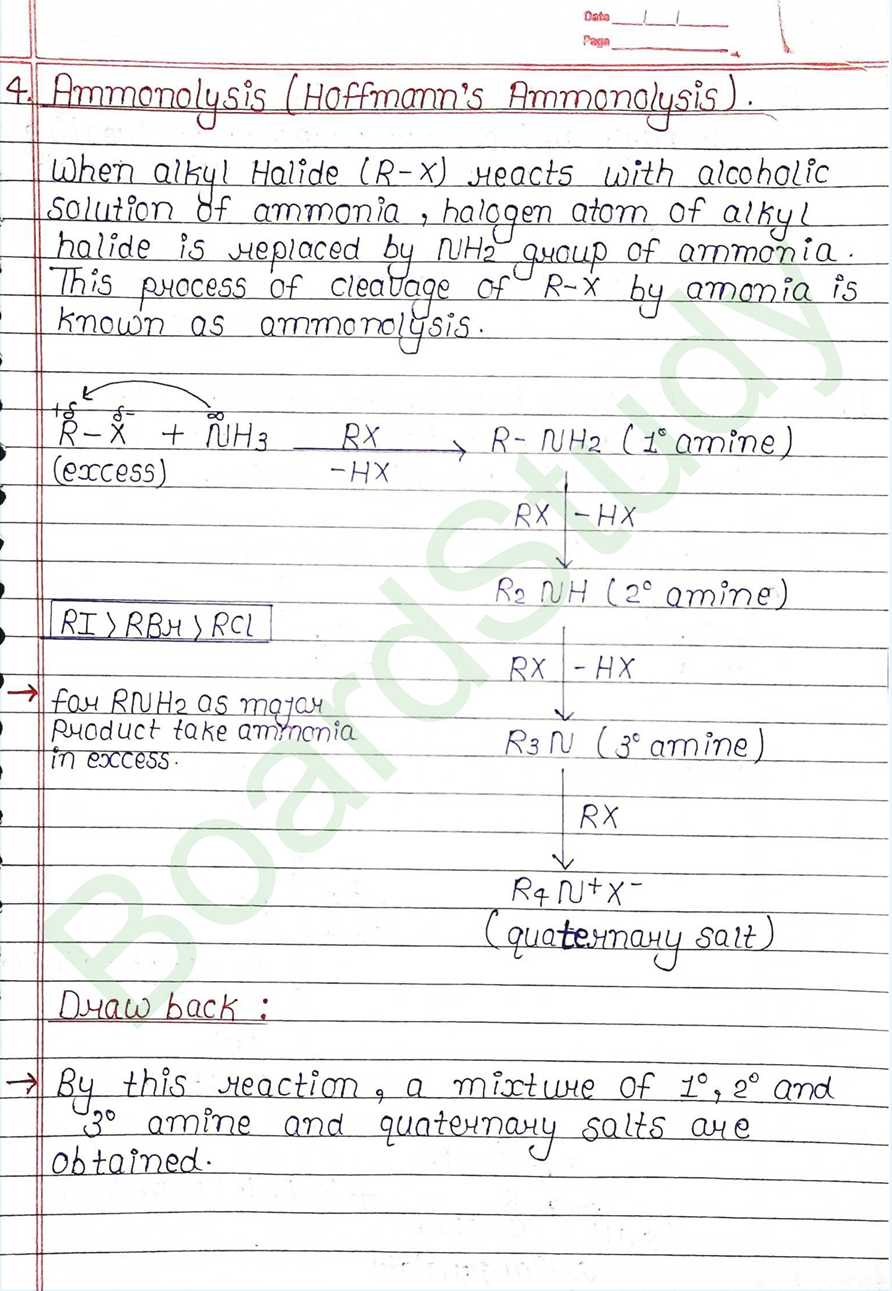 Date
Page
4. Ammonolysis (Hoffmann's Ammonolysis).
When alkyl Halide (R-X) reacts with alcoholic
solution of ammonia, halogen atom of alkyl
halide is replaced by NH2 group of ammonia.
This process of cleavage of R-X by amonia is
known as ammonolysis.
+δ δ-
R-X + N̈H3 RX R-NH2 (1° amine)
(excess) -HX
RX -HX
R2NH (2° amine)
RI > RBr > RCl
RX -HX
→ for RNH2 as major
Product take ammonia
in excess.
R3N (3° amine)
RX
R4N+X-
(quaternary salt)
Draw back :
→ By this reaction, a mixture of 1°, 2° and
3° amine and quaternary salts are
obtained.
BoardStudy